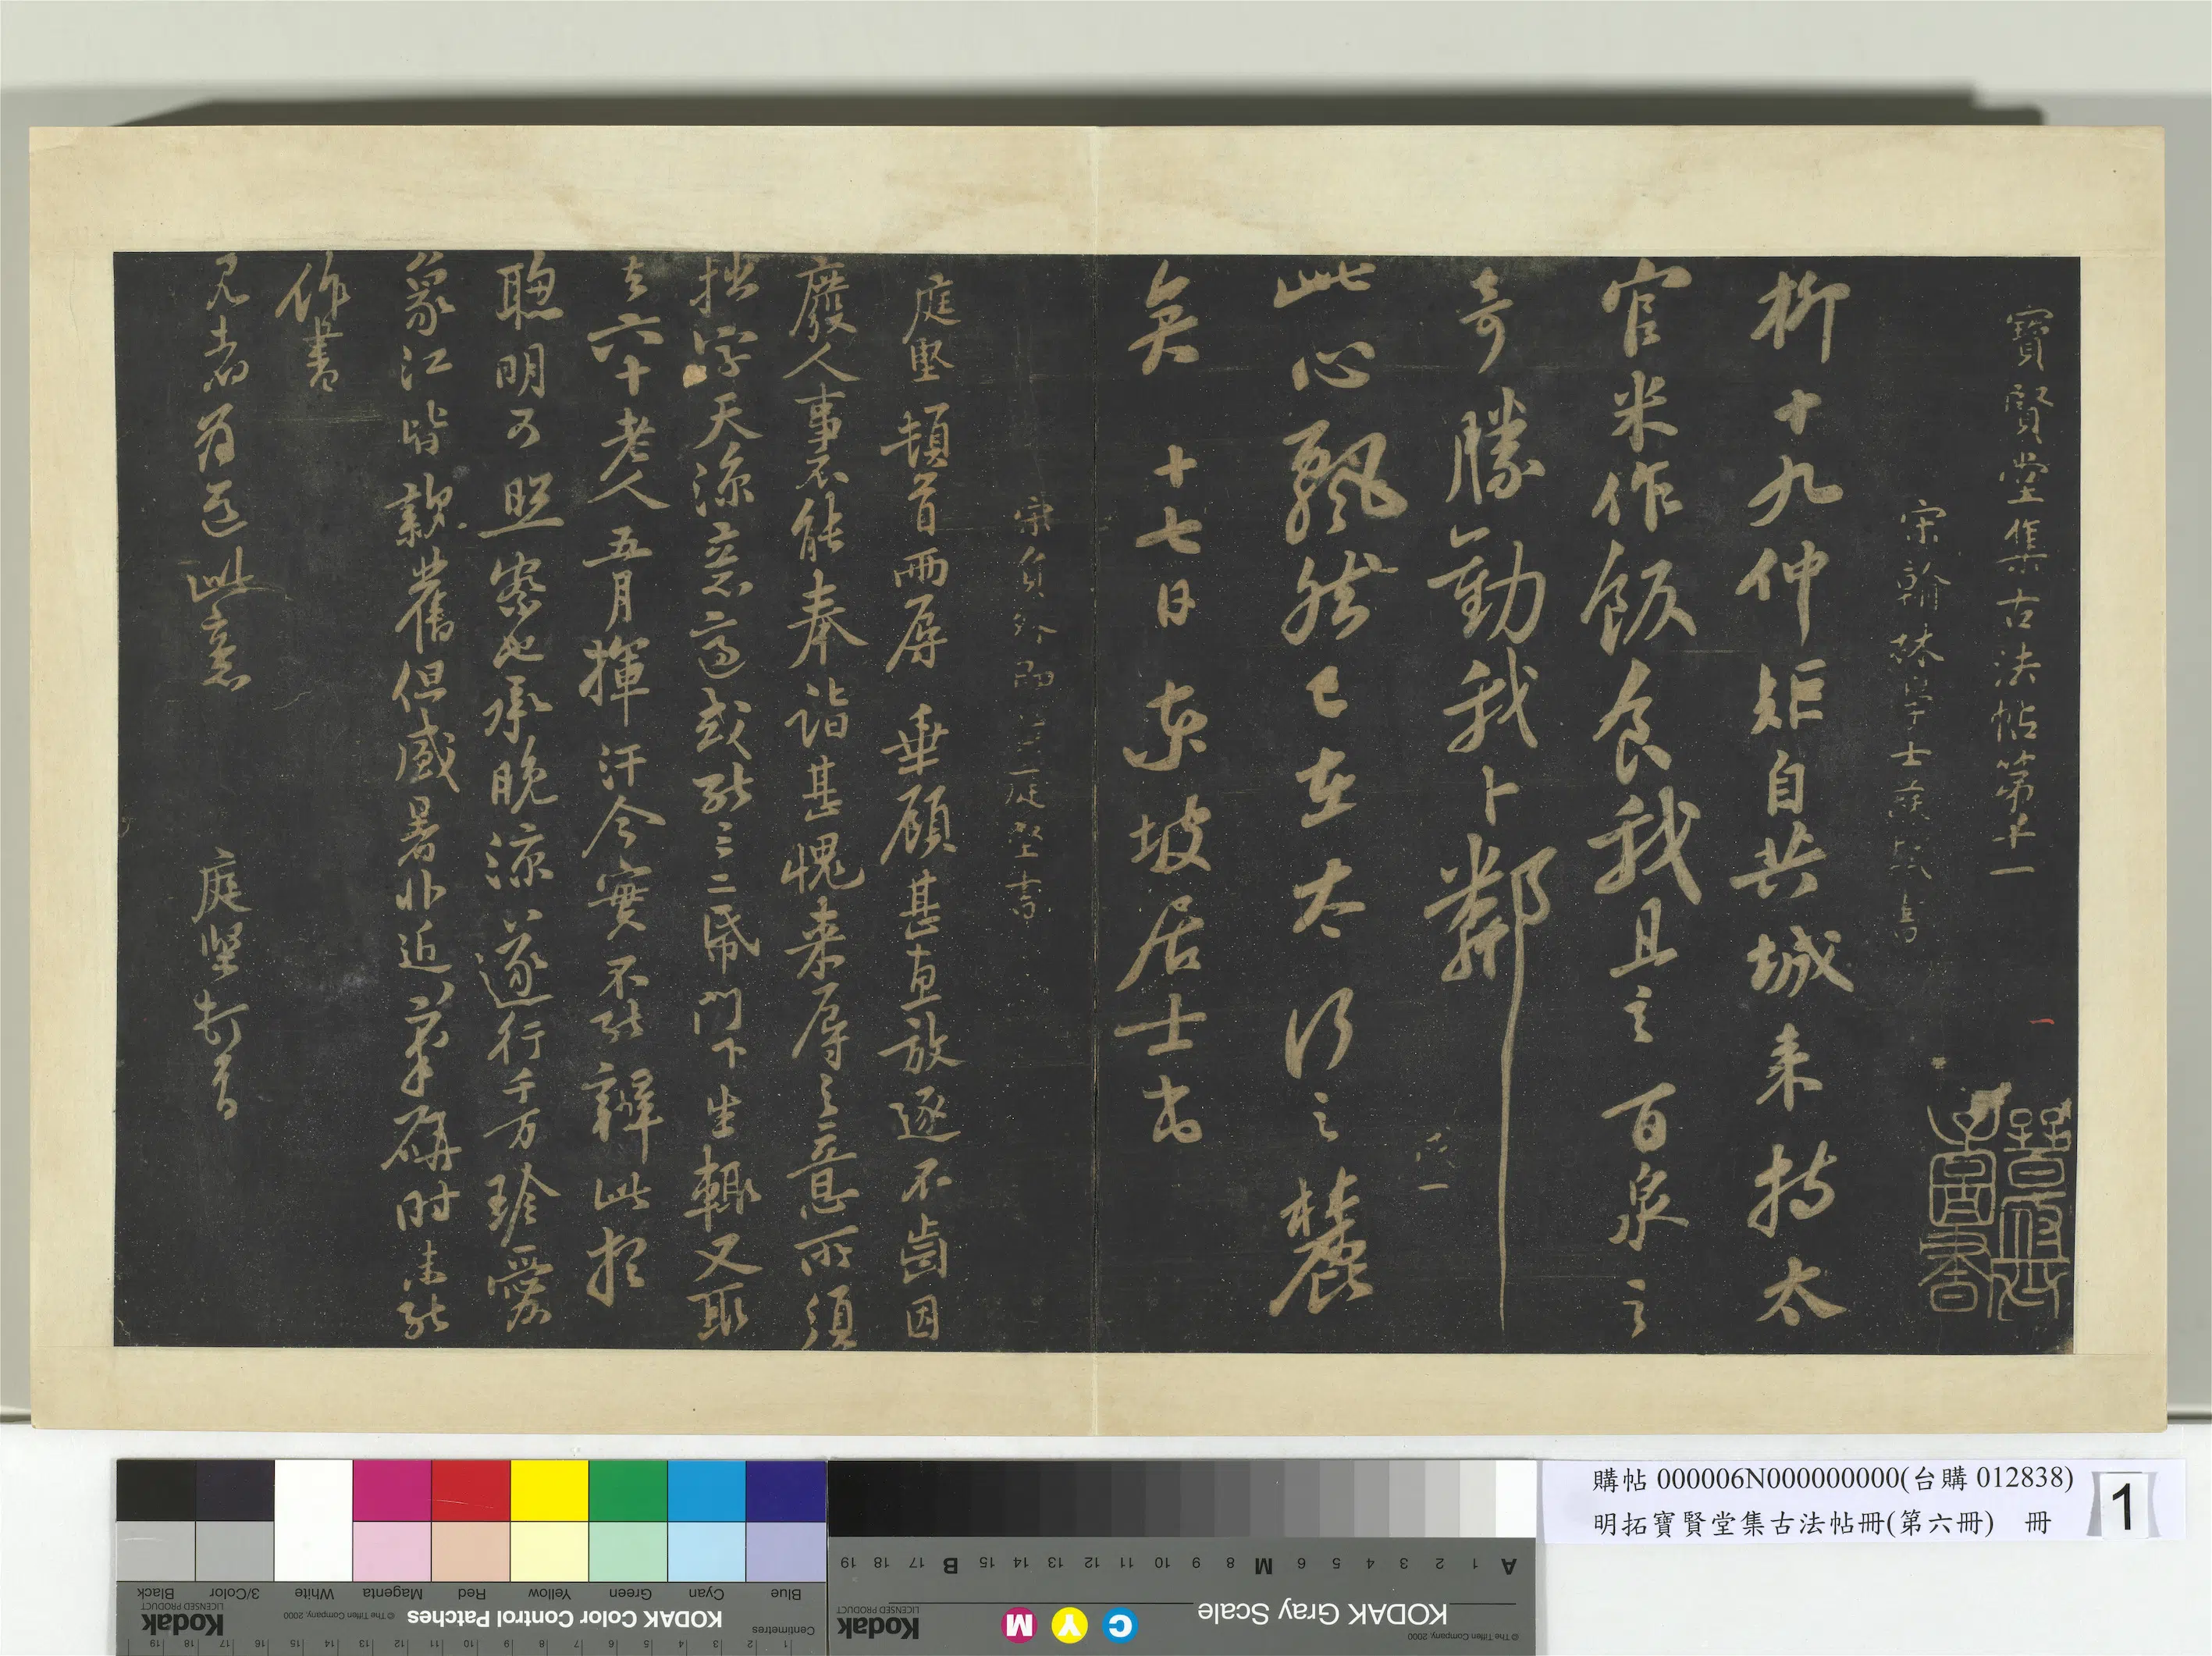 寶賢堂集古法帖第十一
宋翰林學士蘇軾書
柳十九仲矩自共城来持太
官米作飯食我且言百泉之
奇勝勸我卜鄰
此心飄然已在太行之麓
矣 十七日 東坡居士書
宋員外郎黃庭堅書
庭堅頓首兩辱垂顧甚惠放逐不齒因
廢人事不能奉詣甚愧来辱之意所須
拙字天凉意適或能三二紙門下生輒又取
去六十老人五月揮汗今實不能辦此想
聰明可照察也承晚凉遂行千万珍愛
象江皆親舊但盛暑非近筆硯時未能
作書
見者為道此意 庭堅頓首
購帖 000006N000000000(台購 012838)
明拓寶賢堂集古法帖冊(第六冊) 冊
1
KODAK Color Control Patches
© The Tiffen Company, 2000
Kodak
LICENSED PRODUCT
Centimetres
Blue Cyan Green Yellow Red Magenta White 3/Color Black
KODAK Gray Scale
C Y M
Kodak
LICENSED PRODUCT
© The Tiffen Company, 2000
A 1 2 3 4 5 6 M 8 9 10 11 12 13 14 15 B 17 18 19